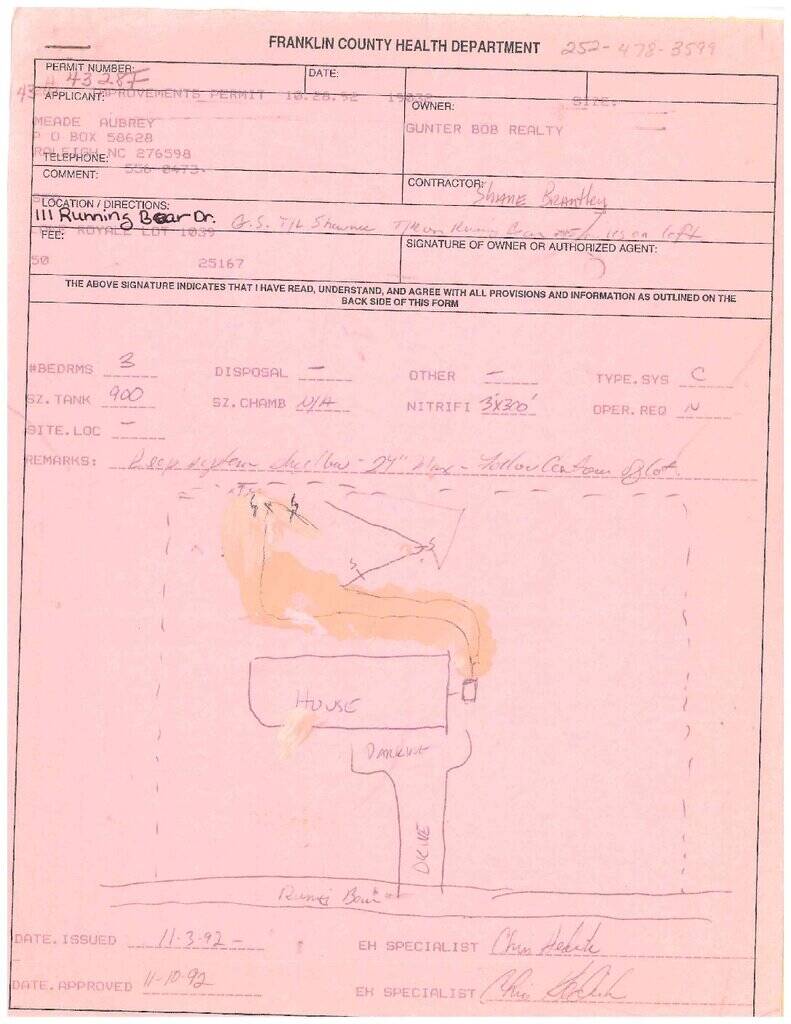 FRANKLIN COUNTY HEALTH DEPARTMENT 252-478-3599
PERMIT NUMBER: DATE:
4328F
IMPROVEMENTS PERMIT 10.28.92 SITE:
APPLICANT: OWNER:
MEADE AUBREY GUNTER BOB REALTY
P O BOX 58628
RALEIGH NC 276598
TELEPHONE:
556-0473
COMMENT: CONTRACTOR: Shane Brantley
LOCATION / DIRECTIONS:
111 Running Bear Dr.
ROYALE LOT 1039 G.S. T/L Shawnee T/R on Running Bear on left
FEE: SIGNATURE OF OWNER OR AUTHORIZED AGENT:
50 25167
THE ABOVE SIGNATURE INDICATES THAT I HAVE READ, UNDERSTAND, AND AGREE WITH ALL PROVISIONS AND INFORMATION AS OUTLINED ON THE
BACK SIDE OF THIS FORM
#BEDRMS 3 DISPOSAL – OTHER – TYPE.SYS C
SZ.TANK 900 SZ.CHAMB N/A NITRIFI 3'X300' OPER.REQ N
SITE.LOC –
REMARKS: Keep system shallow - 24" Max - Follow Contour of lot.
HOUSE
PARKING
DRIVE
DATE.ISSUED 11-3-92 EH SPECIALIST Chris
DATE.APPROVED 11-10-92 EH SPECIALIST Chris